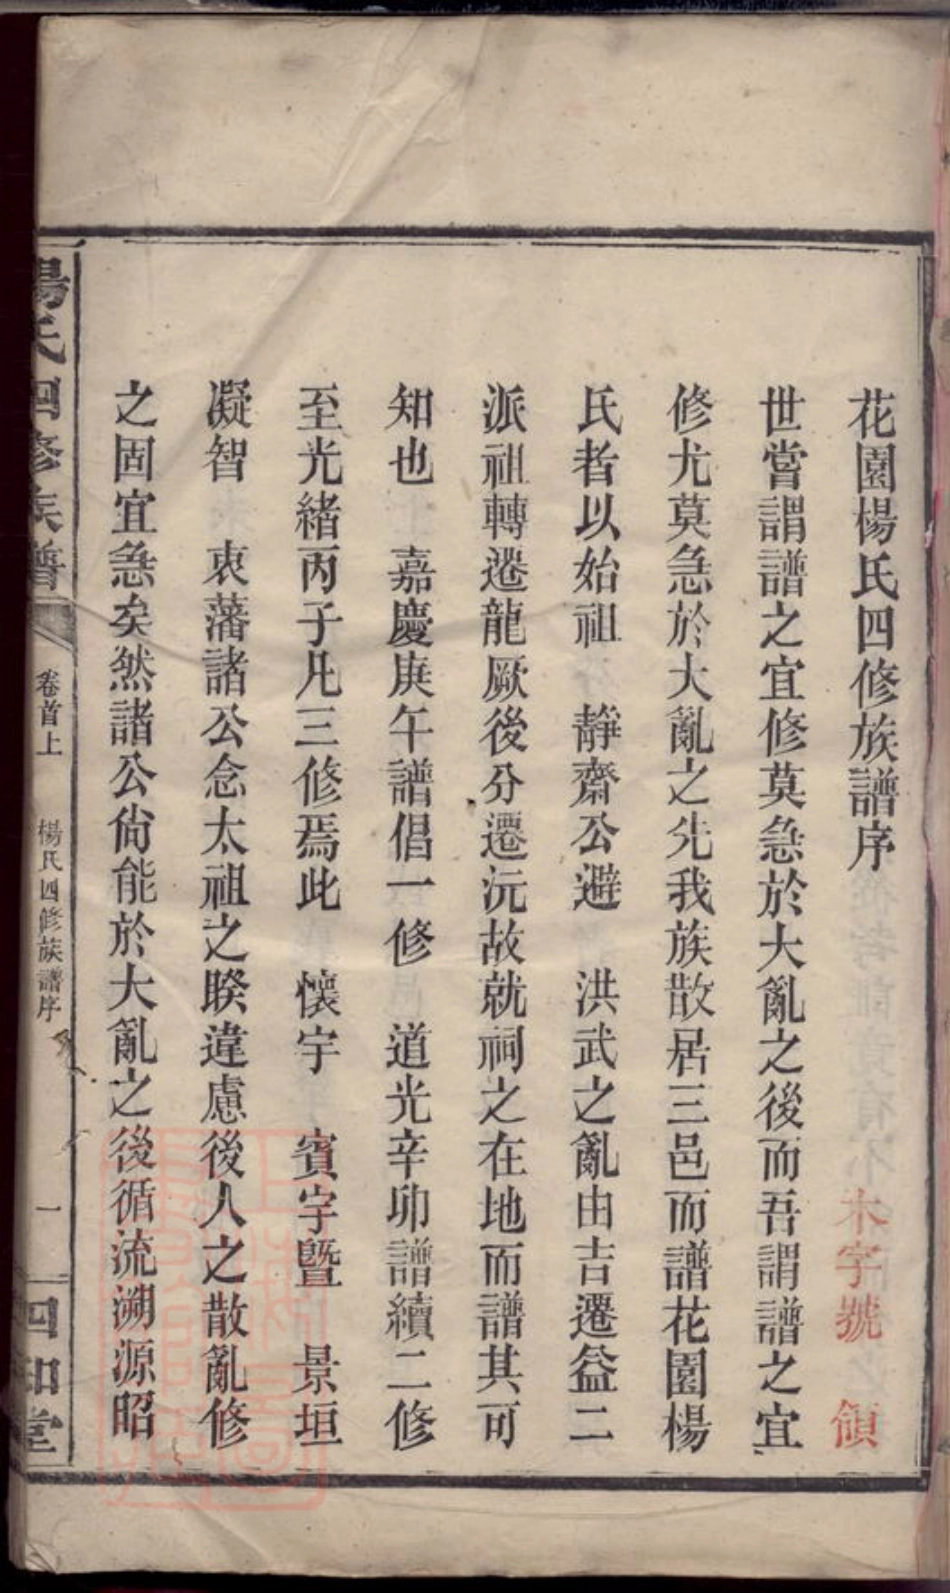 花園楊氏四修族譜序
木字號 領
世嘗謂譜之宜修莫急於大亂之後而吾謂譜之宜
修尤莫急於大亂之先我族散居三邑而譜花園楊
氏者以始祖 靜齋公避 洪武之亂由吉遷益二
派祖轉遷龍厥後分遷沅故就祠之在地而譜其可
知也 嘉慶庚午譜倡一修 道光辛卯譜續二修
至光緒丙子凡三修焉此 懷宇 賓宇曁 景垣
凝智 衷藩諸公念太祖之睽違慮後人之散亂修
之固宜急矣然諸公尙能於大亂之後循流溯源昭
楊氏四修族譜
卷首上
楊氏四修族譜序
一
四知堂